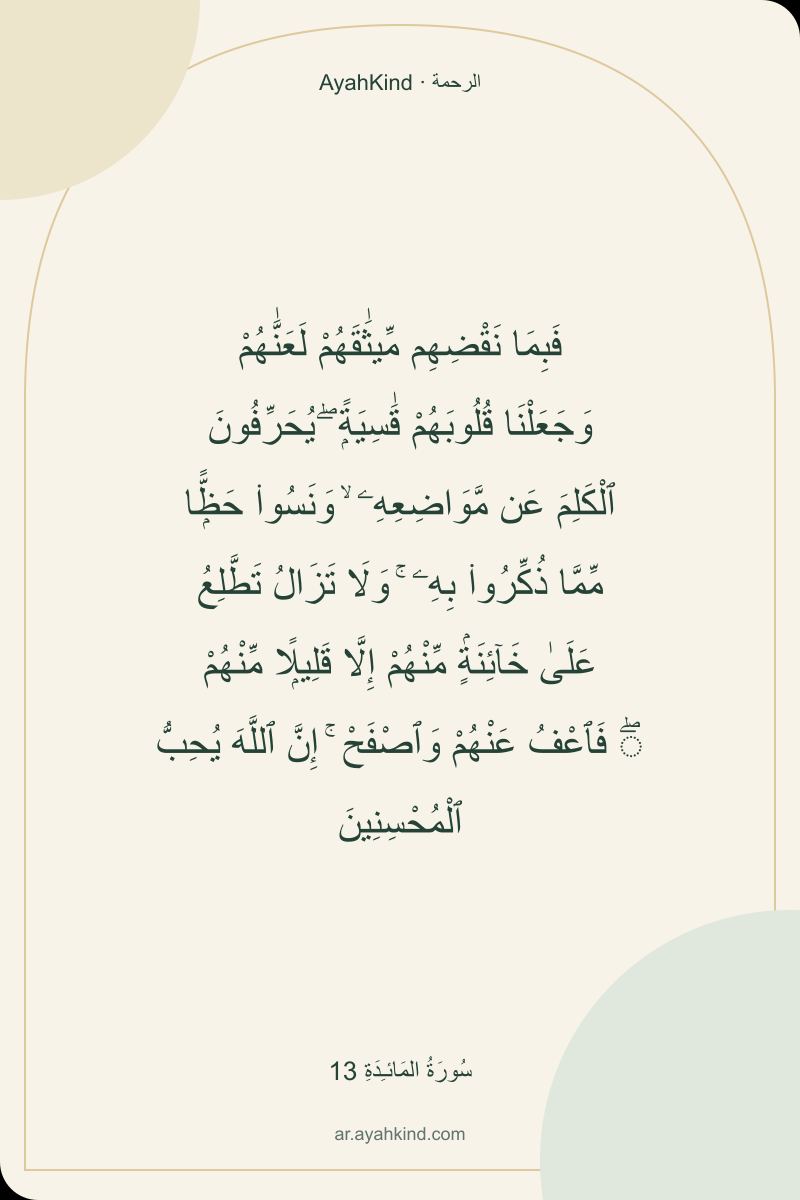 AyahKind · الرحمة
فَبِمَا نَقْضِهِم مِّيثَٰقَهُمْ لَعَنَّٰهُمْ
وَجَعَلْنَا قُلُوبَهُمْ قَٰسِيَةًۭ ۖ يُحَرِّفُونَ
ٱلْكَلِمَ عَن مَّوَاضِعِهِۦ ۙ وَنَسُوا۟ حَظًّۭا
مِّمَّا ذُكِّرُوا۟ بِهِۦ ۚ وَلَا تَزَالُ تَطَّلِعُ
عَلَىٰ خَآئِنَةٍۢ مِّنْهُمْ إِلَّا قَلِيلًۭا مِّنْهُمْ
ۖ فَٱعْفُ عَنْهُمْ وَٱصْفَحْ ۚ إِنَّ ٱللَّهَ يُحِبُّ
ٱلْمُحْسِنِينَ
سُورَةُ المَائـِدَةِ 13
ar.ayahkind.com